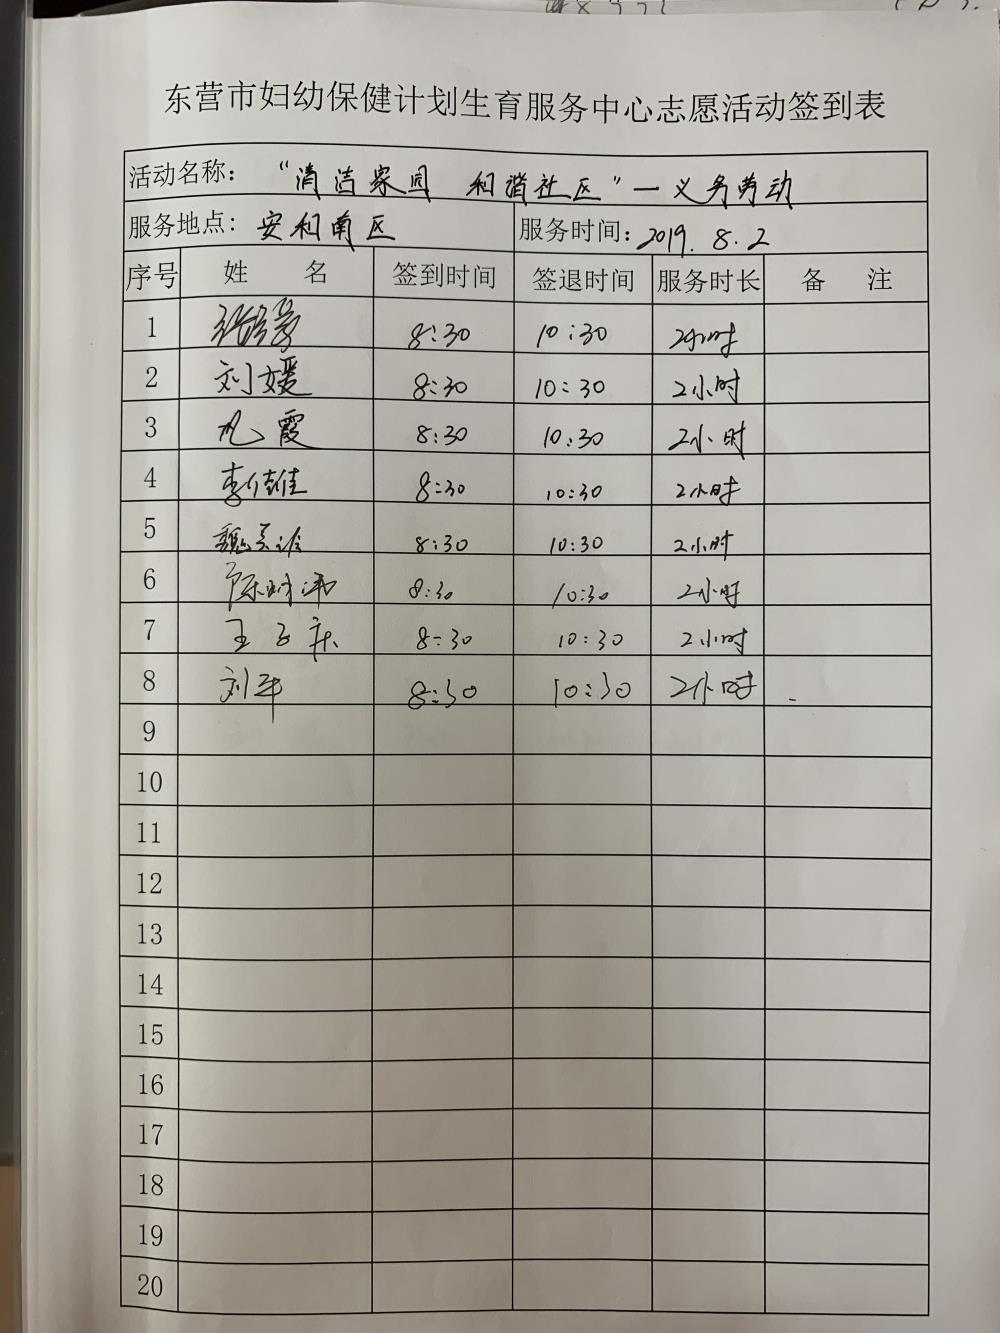 东营市妇幼保健计划生育服务中心志愿活动签到表
活动名称: “清洁家园 和谐社区”一义务劳动
服务地点: 安和南区 服务时间: 2019.8.2
序号 姓 名 签到时间 签退时间 服务时长 备 注
1 8:30 10:30 2小时
2 刘媛 8:30 10:30 2小时
3 霞 8:30 10:30 2小时
4 李佳 8:30 10:30 2小时
5 魏 8:30 10:30 2小时
6 8:30 10:30 2小时
7 王子 8:30 10:30 2小时
8 刘军 8:30 10:30 2小时
9
10
11
12
13
14
15
16
17
18
19
20